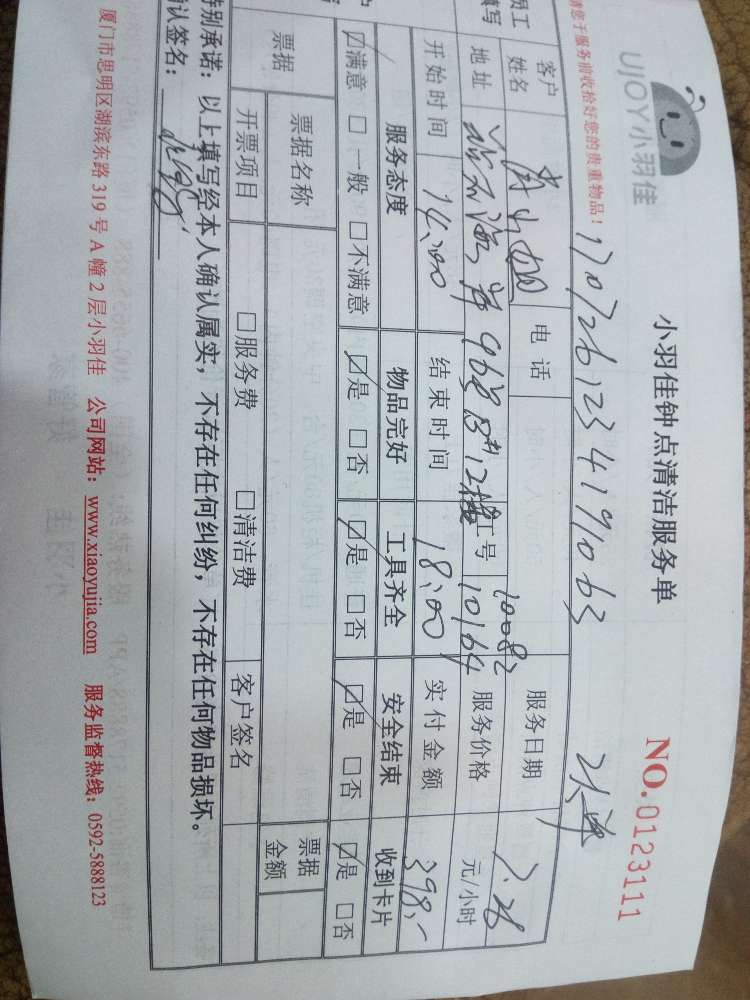 UJOY小羽佳
小羽佳钟点清洁服务单
NO.0123111
请您于服务前收拾好您的贵重物品！
1707261234191063
大单
员工
填写
客户
姓名
电话
服务日期
7.26
地址
968
12楼
工号
10082
10164
服务价格
元/小时
开始时间
14:00
结束时间
18:00
实付金额
398.-
服务态度
物品完好
工具齐全
安全结束
收到卡片
☑满意 □一般 □不满意
☑是 □否
☑是 □否
☑是 □否
☑是 □否
票据
票据名称
票据
金额
开票项目
□服务费
□清洁费
客户签名
特别承诺：以上填写经本人确认属实，不存在任何纠纷，不存在任何物品损坏。
确认签名：
厦门市思明区湖滨东路 319 号 A 幢 2 层小羽佳 公司网站：www.xiaoyujia.com 服务监督热线：0592-5888123